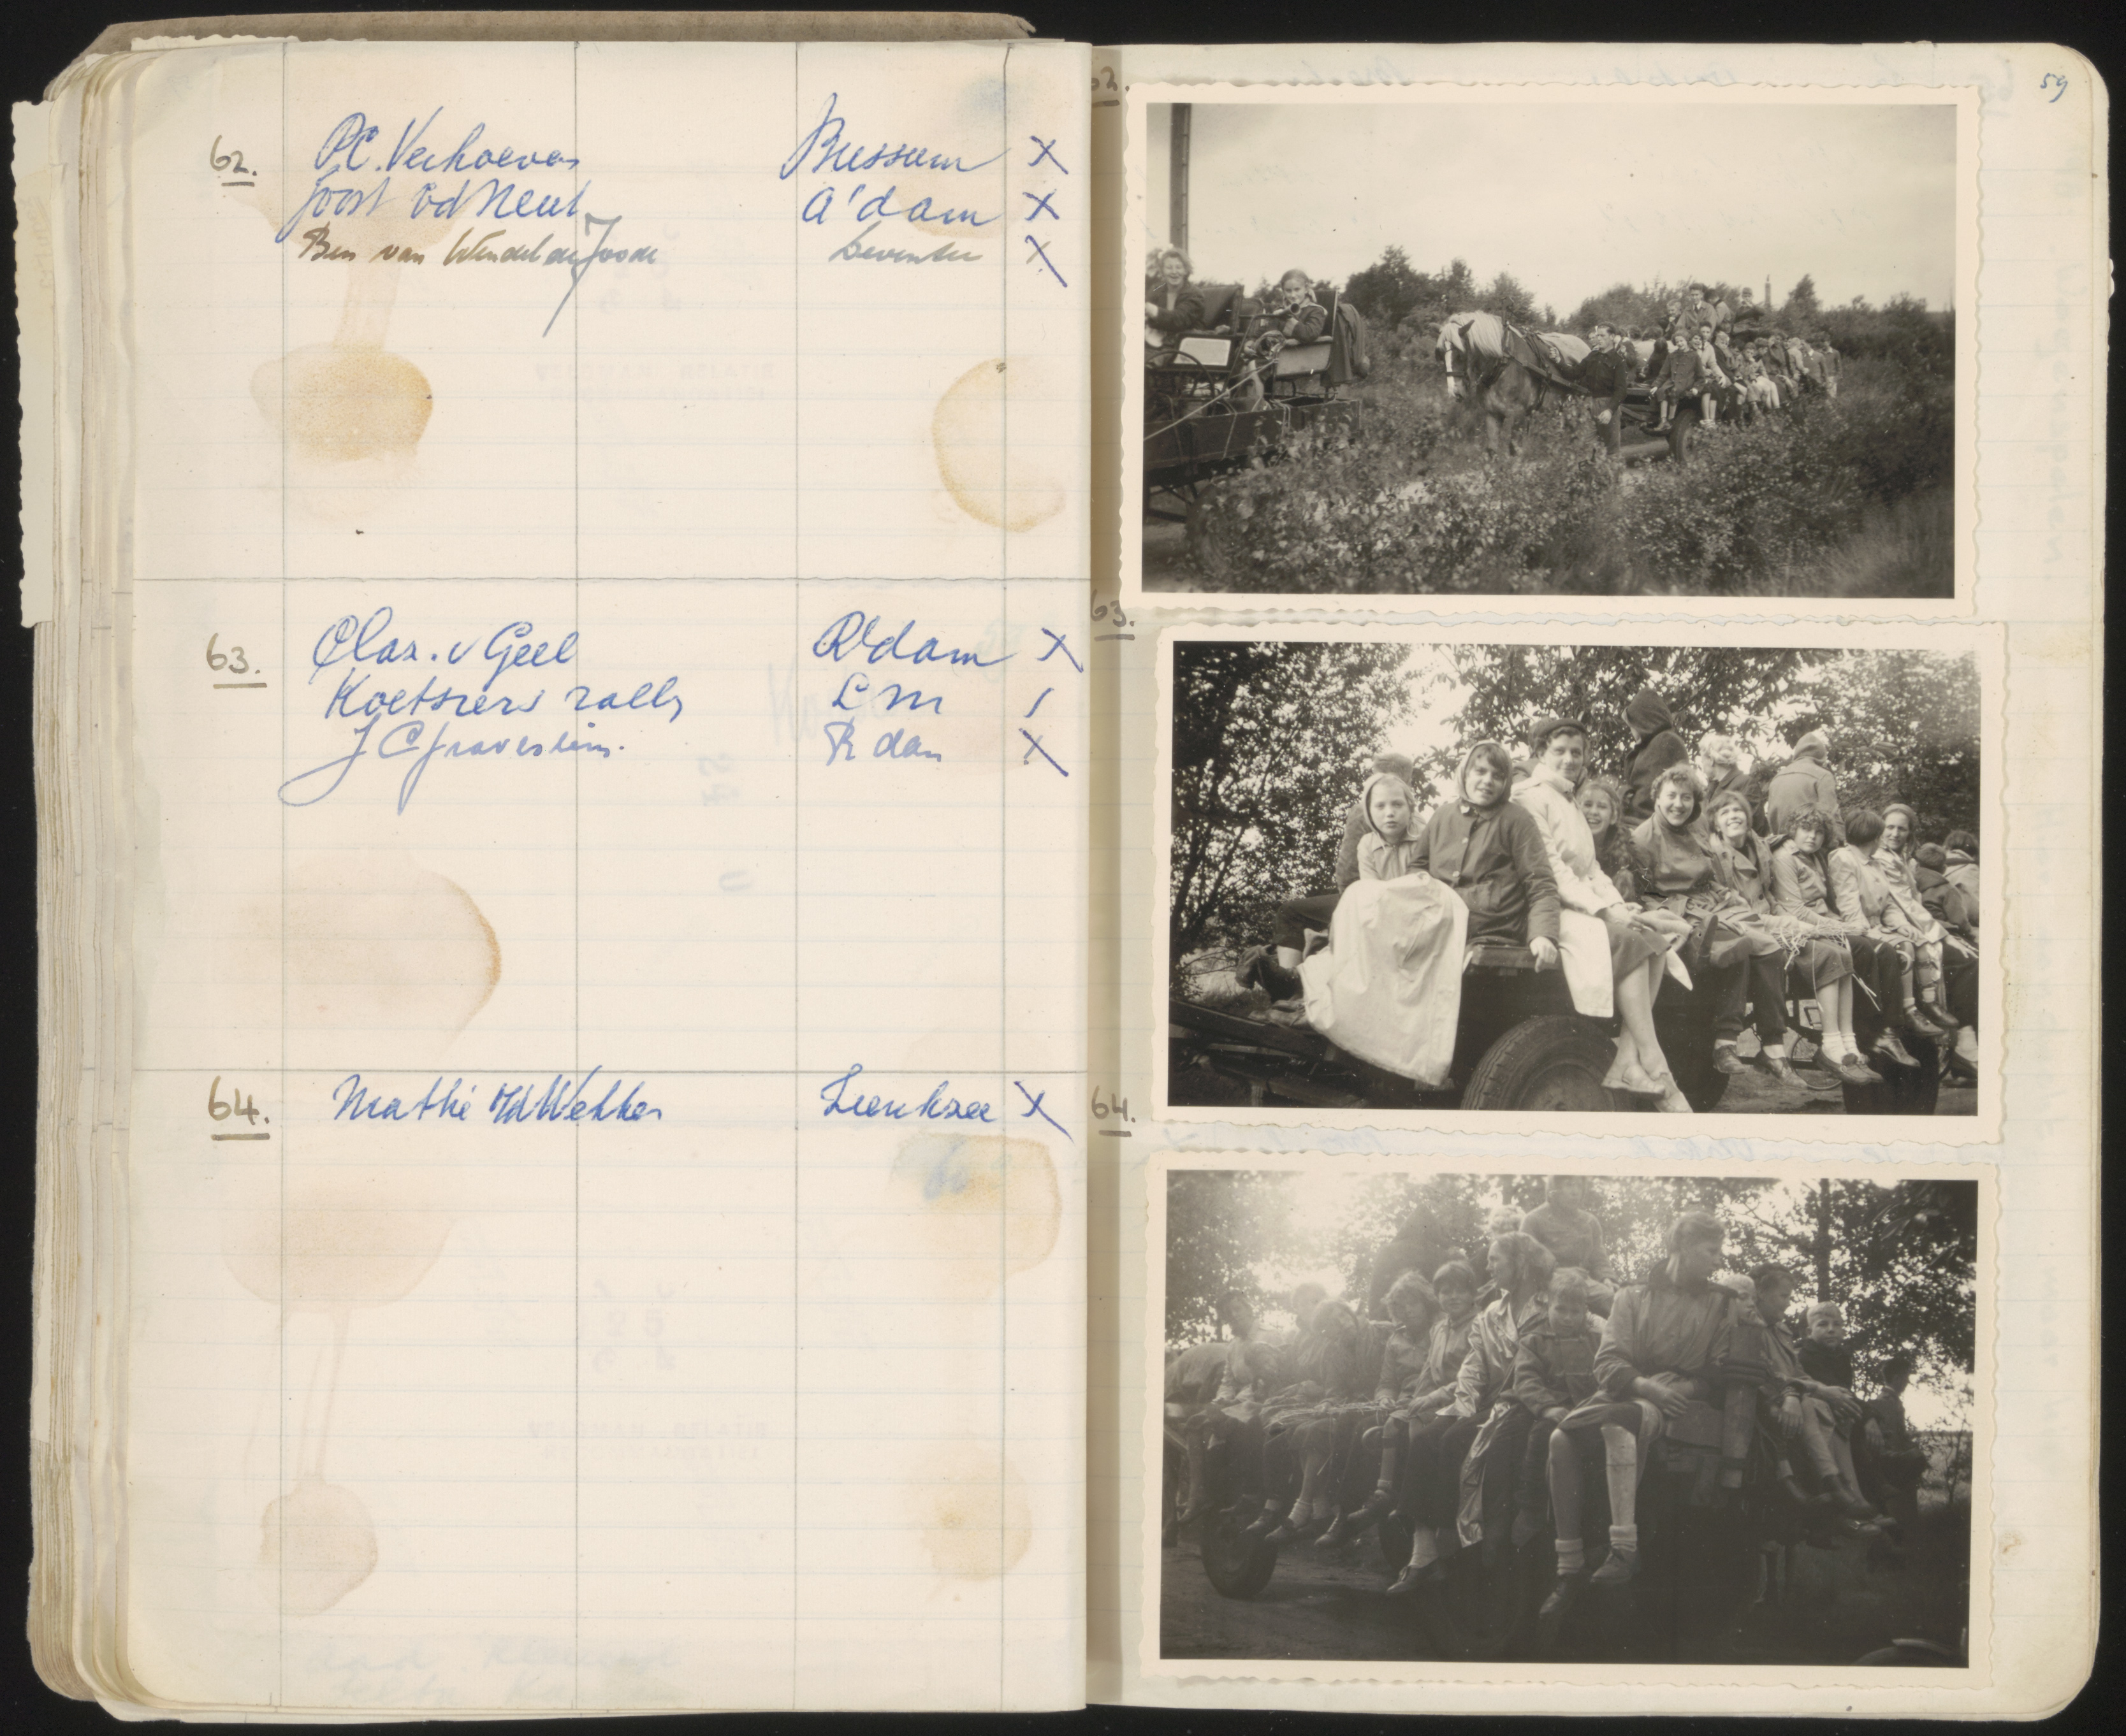 62. P.C. Verhoeven Bussum X
Joost vd Neut A'dam X
Ben van Wendel de Joode Deventer X
63. Clax. v Geel R'dam X
Koetsiers rally L M /
J C Gravesteijn. R dam X
64. Mathé vd Wekken Zierikzee X
59
62.
63.
64.